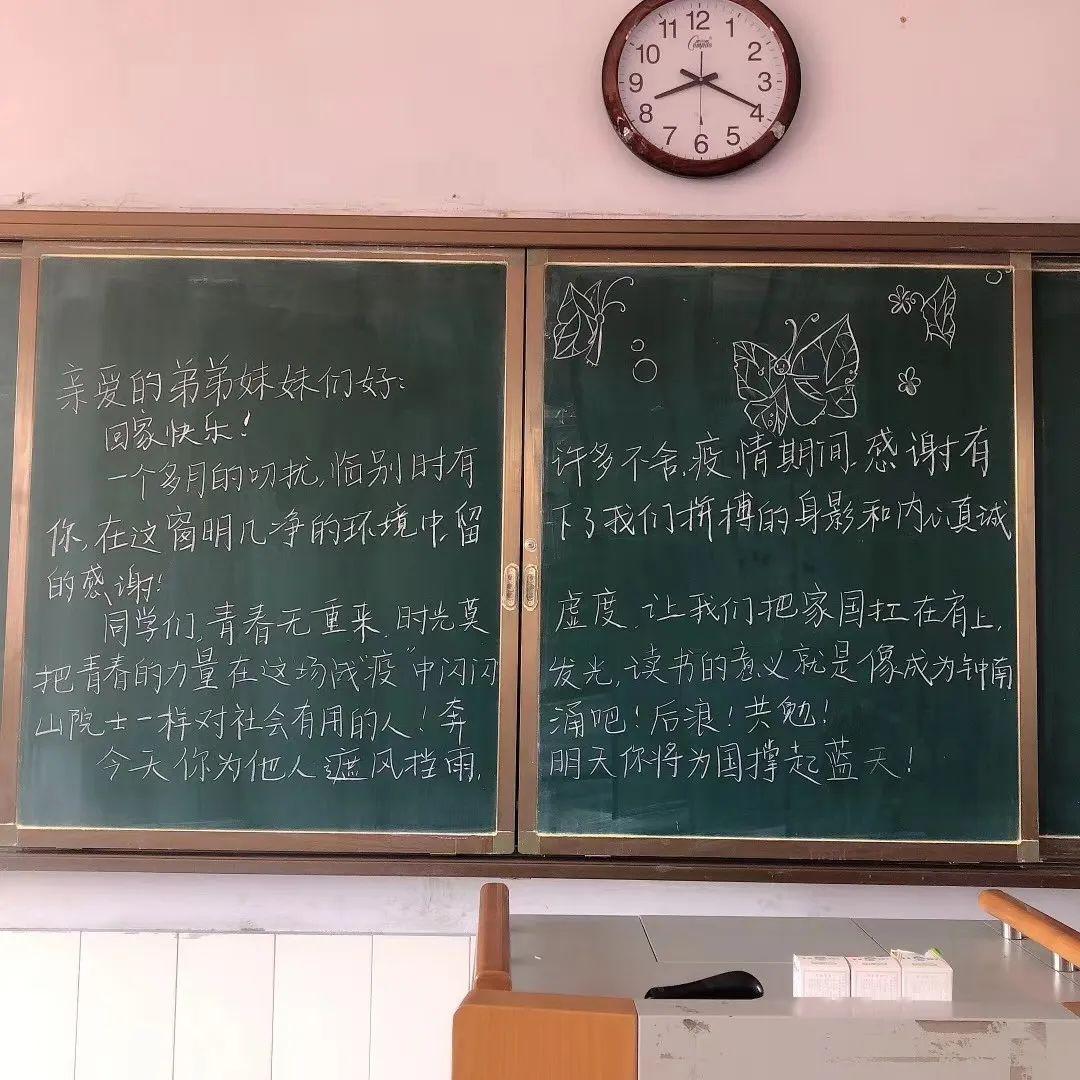 12
11 1
10 2
9 3
8 4
7 5
6
Compas
亲爱的弟弟妹妹们好:
回家快乐!
一个多月的叨扰,临别时有许多不舍,疫情期间感谢有
你,在这窗明几净的环境中,留下了我们拼搏的身影和内心真诚
的感谢!
同学们,青春无重来,时光莫虚度,让我们把家国扛在肩上,
把青春的力量在这场战疫"中闪闪发光,读书的意义就是像成为钟南
山院士一样对社会有用的人!奔涌吧!后浪!共勉!
今天你为他人遮风挡雨,明天你将为国撑起蓝天!